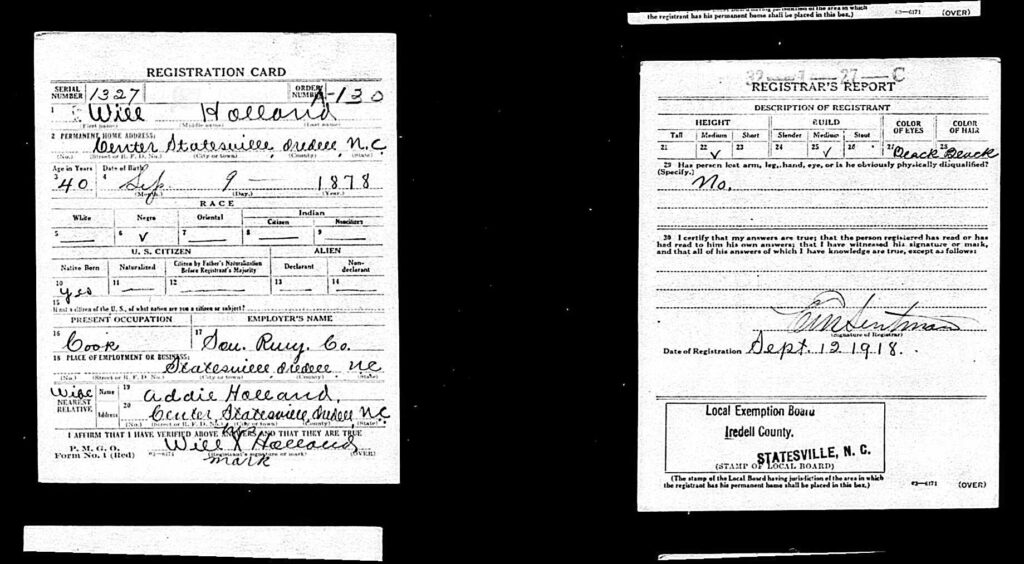 REGISTRATION CARD
SERIAL NUMBER 1327 ORDER NUMBER A-130
1 Will Holland
(First name) (Middle name) (Last name)
2 PERMANENT HOME ADDRESS:
Center Statesville Iredell N.C.
(No.) (Street or R. F. D. No.) (City or town) (County) (State)
Age in Years Date of Birth
3 40 4 Sep. 9 — 1878
(Month.) (Day.) (Year.)
RACE
White Negro Oriental Indian
Citizen Noncitizen
5 6 ✓ 7 8 9
U. S. CITIZEN ALIEN
Native Born Naturalized Citizen by Father's Naturalization Before Registrant's Majority Declarant Non-declarant
10 yes 11 12 13 14
15
If not a citizen of the U. S., of what nation are you a citizen or subject?
PRESENT OCCUPATION EMPLOYER'S NAME
16 Cook 17 Sou. Rwy. Co.
18 PLACE OF EMPLOYMENT OR BUSINESS:
Statesville Iredell N.C
(No.) (Street or R. F. D. No.) (City or town) (County) (State)
Wife NEAREST RELATIVE Name 19 Addie Holland.
Address 20 Center Statesville Iredell N.C.
(No.) (Street or R. F. D. No.) (City or town) (County) (State)
I AFFIRM THAT I HAVE VERIFIED ABOVE ANSWERS AND THAT THEY ARE TRUE
P. M. G. O.
Form No. 1 (Red) 03—6171 Will X Holland
(Registrant's signature or mark) (OVER)
mark
the registrant has his permanent home shall be placed in this box.) 03—6171 (OVER)
32 — 1 — 27 — C
REGISTRAR'S REPORT
DESCRIPTION OF REGISTRANT
HEIGHT BUILD COLOR OF EYES COLOR OF HAIR
Tall Medium Short Slender Medium Stout
21 22 ✓ 23 24 25 ✓ 26 27 Black 28 Black
29 Has person lost arm, leg, hand, eye, or is he obviously physically disqualified?
(Specify.)
No.
30 I certify that my answers are true; that the person registered has read or has
had read to him his own answers; that I have witnessed his signature or mark,
and that all of his answers of which I have knowledge are true, except as follows:
(Signature of Registrar)
Date of Registration Sept. 12 1918.
Local Exemption Board
Iredell County.
STATESVILLE, N. C.
(STAMP OF LOCAL BOARD)
(The stamp of the Local Board having jurisdiction of the area in which
the registrant has his permanent home shall be placed in this box.) 03—6171 (OVER)